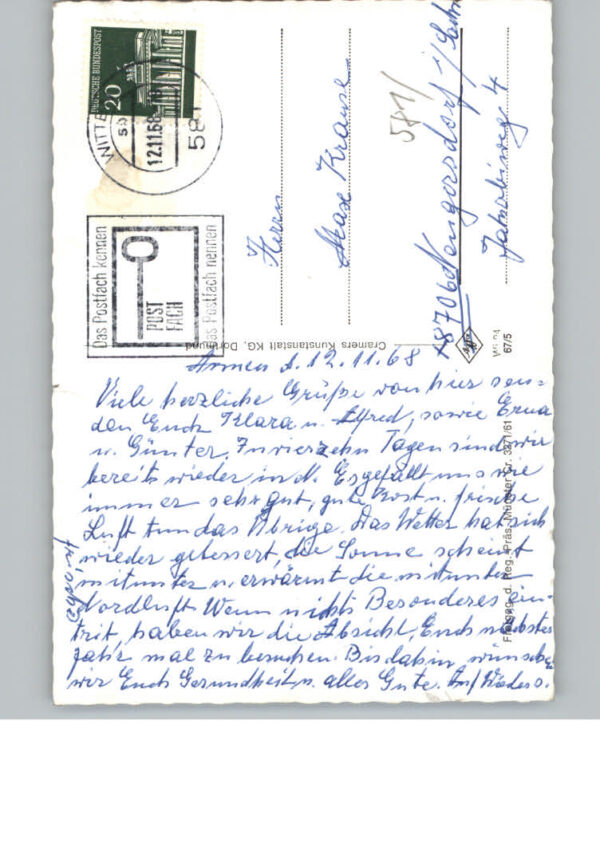 DEUTSCHE BUNDESPOST
20
WITTE
sb
12.11.68
581
Das Postfach kennen
POST
FACH
das Postfach nennen
Herrn
Max Krause
8706 Neugersdorf i/Sachs
Jakobiweg 4
581/
Cramers Kunstanstalt KG, Dortmund
67/5
Freigeg. d. Reg. Präs. Münster Nr. 3271/61
Annen d. 12.11.68
Viele herzliche Grüße von hier sen=
den Euch Klara u. Alfred, sowie Erna
u. Günter. In vierzehn Tagen sind wir
bereits wieder in N. Es gefällt uns wie
immer sehr gut, gute Kost u. frische
Luft tun das Übrige. Das Wetter hat sich
wieder gebessert, die Sonne scheint
mitunter u. erwärmt die mitunter
Nordluft. Wenn nichts Besonderes ein-
trit, haben wir die Absicht, Euch nächstes
Jahr mal zu besuchen. Bis dahin, wünschen
wir Euch Gesundheit u. alles Gute. Auf Wieders.